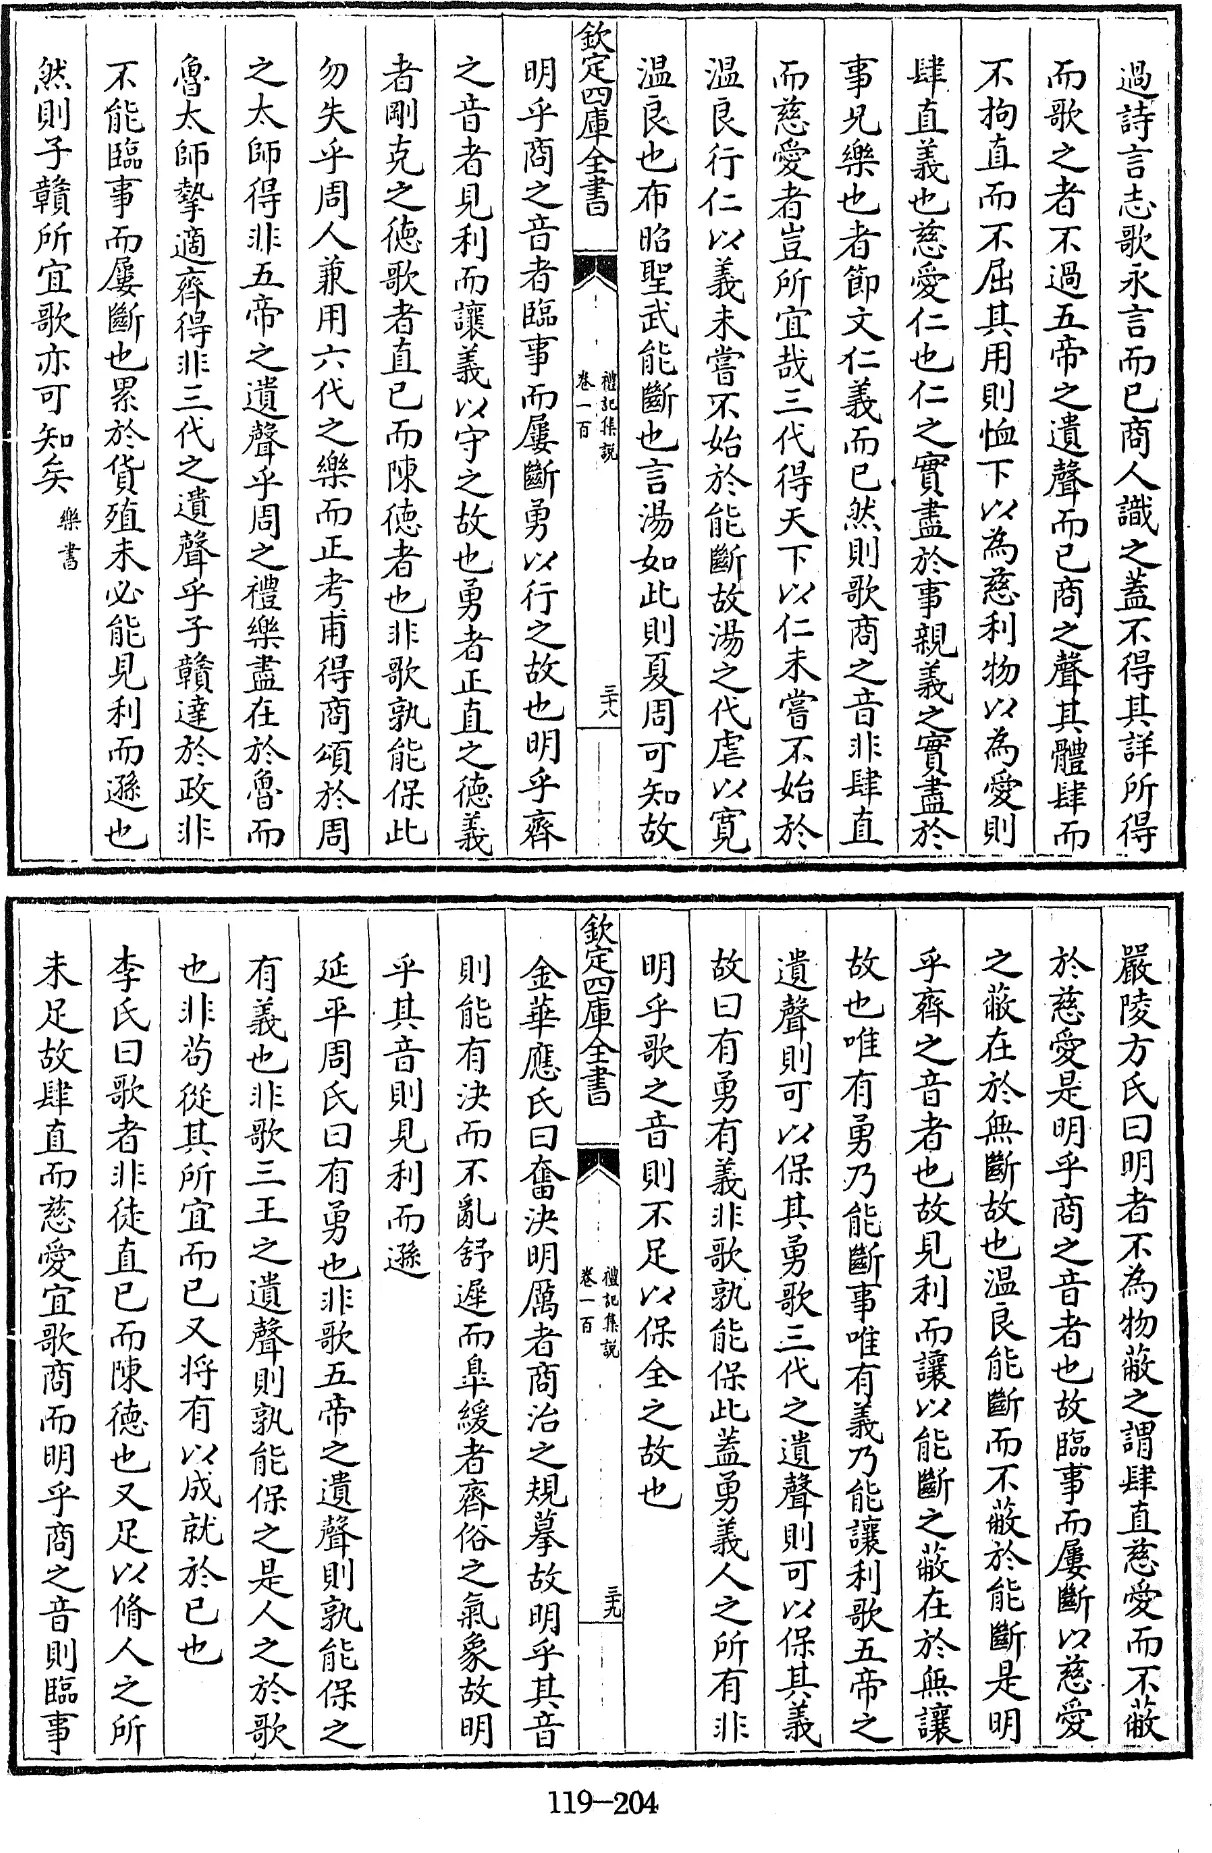 過詩言志歌永言而已商人識之蓋不得其詳所得
而歌之者不過五帝之遺聲而已商之聲其體肆而
不拘直而不屈其用則恤下以為慈利物以為愛則
肆直義也慈愛仁也仁之實盡於事親義之實盡於
事兄樂也者節文仁義而已然則歌商之音非肆直
而慈愛者豈所宜哉三代得天下以仁未嘗不始於
温良行仁以義未嘗不始於能斷故湯之代虐以寛
温良也布昭聖武能斷也言湯如此則夏周可知故
欽定四庫全書
禮記集說
卷一百
三十八
明乎商之音者臨事而屢斷勇以行之故也明乎齊
之音者見利而讓義以守之故也勇者正直之德義
者剛克之德歌者直已而陳德者也非歌孰能保此
勿失乎周人兼用六代之樂而正考甫得商頌於周
之太師得非五帝之遺聲乎周之禮樂盡在於魯而
魯太師摯適齊得非三代之遺聲乎子贛達於政非
不能臨事而屢斷也累於貨殖未必能見利而遜也
然則子贛所宜歌亦可知矣 樂書
嚴陵方氏曰明者不為物蔽之謂肆直慈愛而不蔽
於慈愛是明乎商之音者也故臨事而屢斷以慈愛
之蔽在於無斷故也温良能斷而不蔽於能斷是明
乎齊之音者也故見利而讓以能斷之蔽在於無讓
故也唯有勇乃能斷事唯有義乃能讓利歌五帝之
遺聲則可以保其勇歌三代之遺聲則可以保其義
故曰有勇有義非歌孰能保此蓋勇義人之所有非
明乎歌之音則不足以保全之故也
欽定四庫全書
禮記集說
卷一百
三十九
金華應氏曰奮決明厲者商治之規摹故明乎其音
則能有決而不亂舒遲而臯緩者齊俗之氣象故明
乎其音則見利而遜
延平周氏曰有勇也非歌五帝之遺聲則孰能保之
有義也非歌三王之遺聲則孰能保之是人之於歌
也非苟從其所宜而已又將有以成就於已也
李氏曰歌者非徒直已而陳德也又足以脩人之所
未足故肆直而慈愛宜歌商而明乎商之音則臨事
119-204